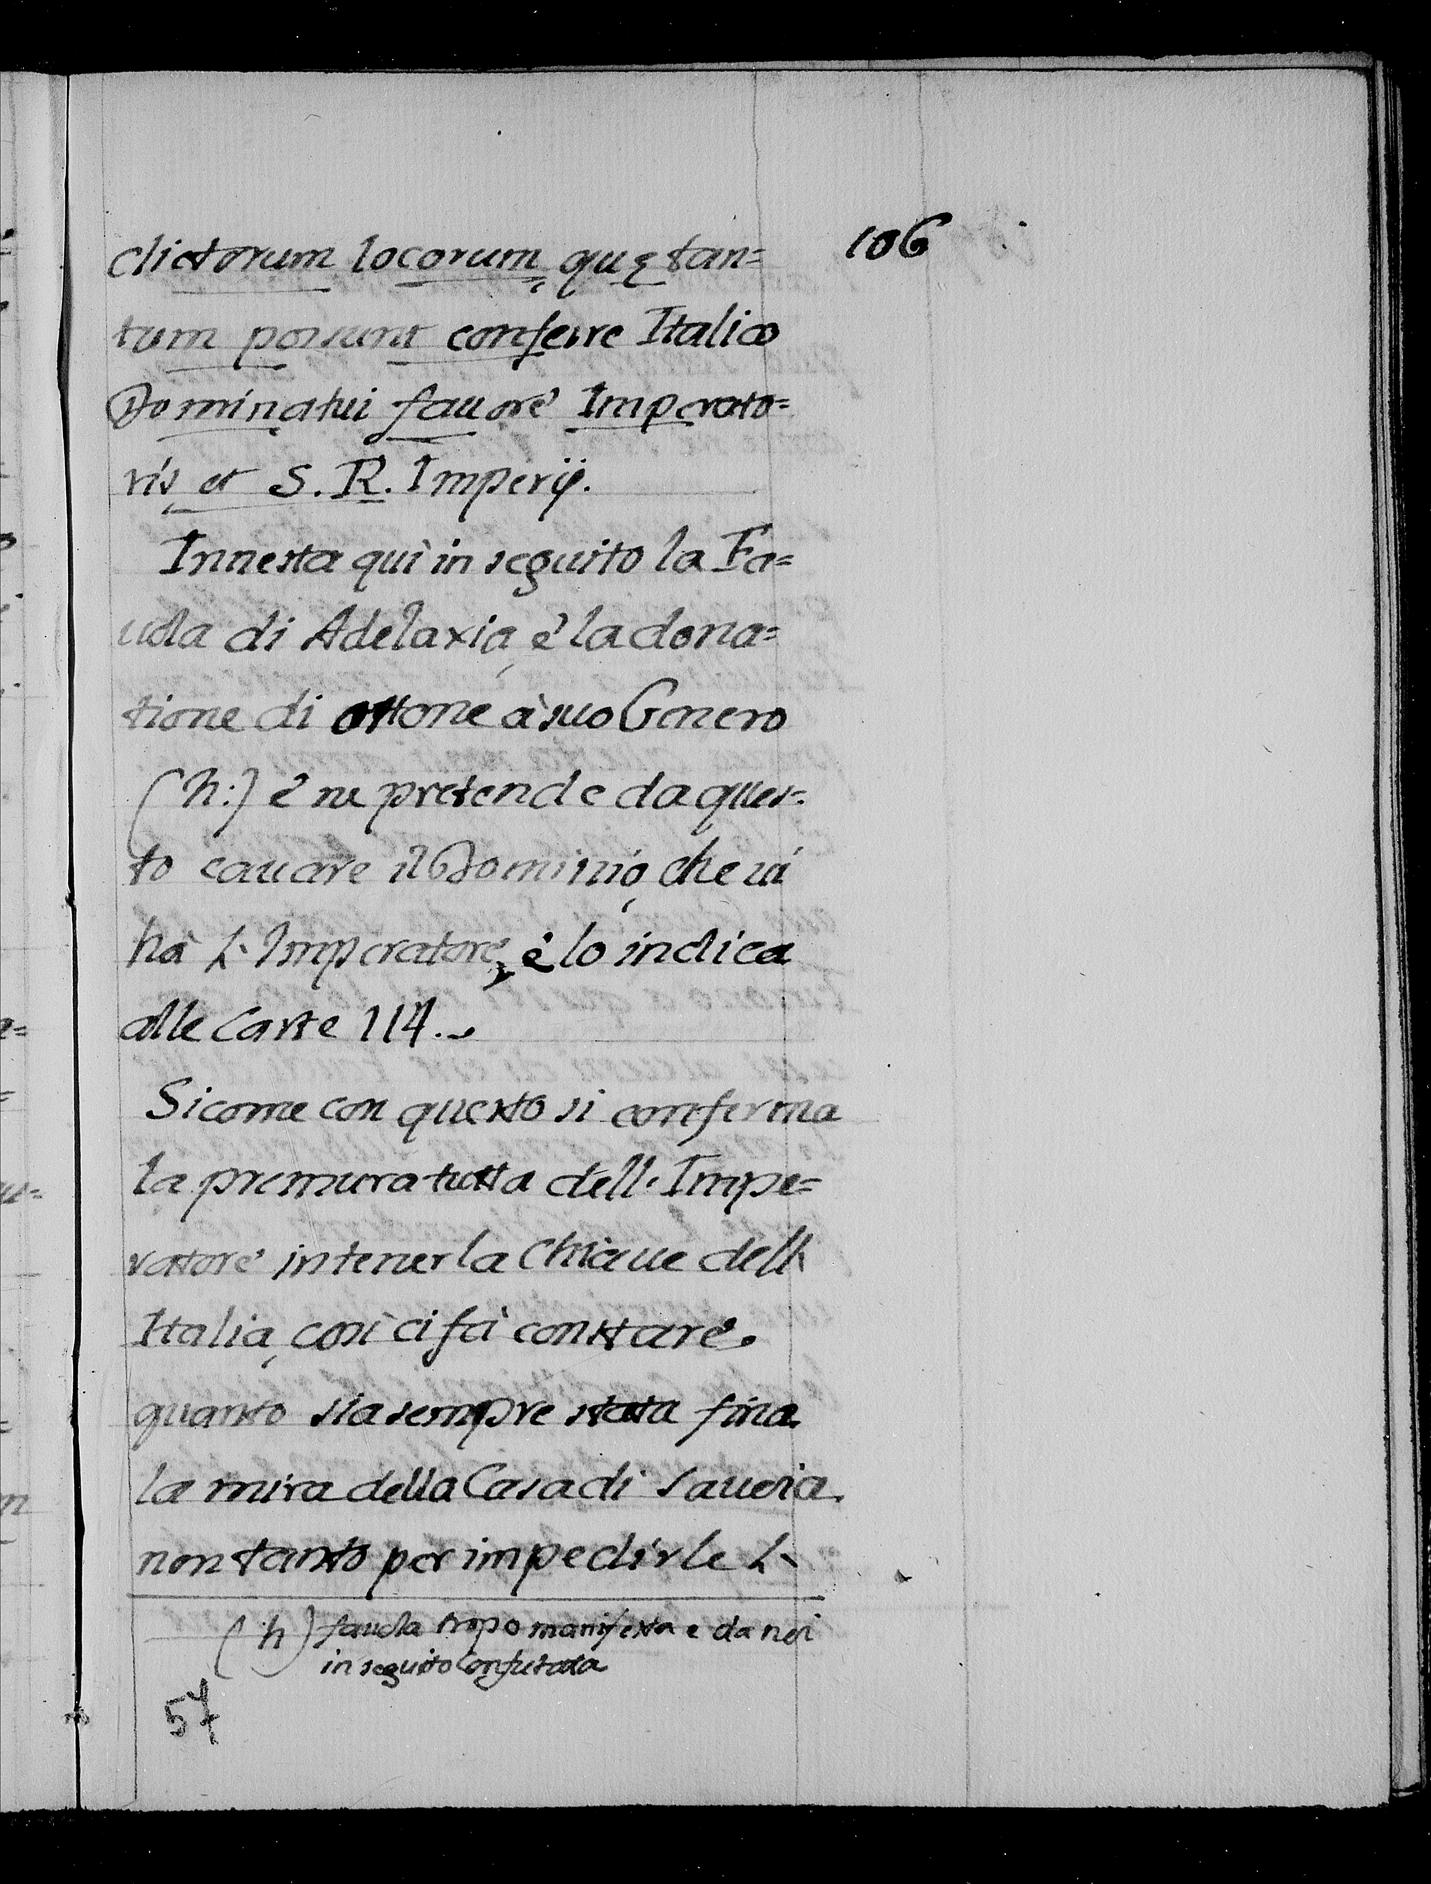 106
dictorum locorum, quę tan=
tum possunt conferre Italico
Dominatui fauore Imperato=
ris, et S. R. Imperÿ.
Innesta quì in seguito la Fa=
uola di Adelaxia, è la dona=
tione di Ottone à suo Genero
(h:) è ne pretende da ques=
to cauare il Dominio, che ui
hà l'Imperatore, è lo indica
alle Carte 114.
Sicome con questo si conferma
la premura tutta dell'Impe=
ratore in tener la Chiaue dell'
Italia, così ci fà constare
quanto sia sempre stata fina
la mira della Casa di Sauoia
non tanto per impedirle l'
(h) fauola tropo manifesta e da noi
in seguito Confutata
57